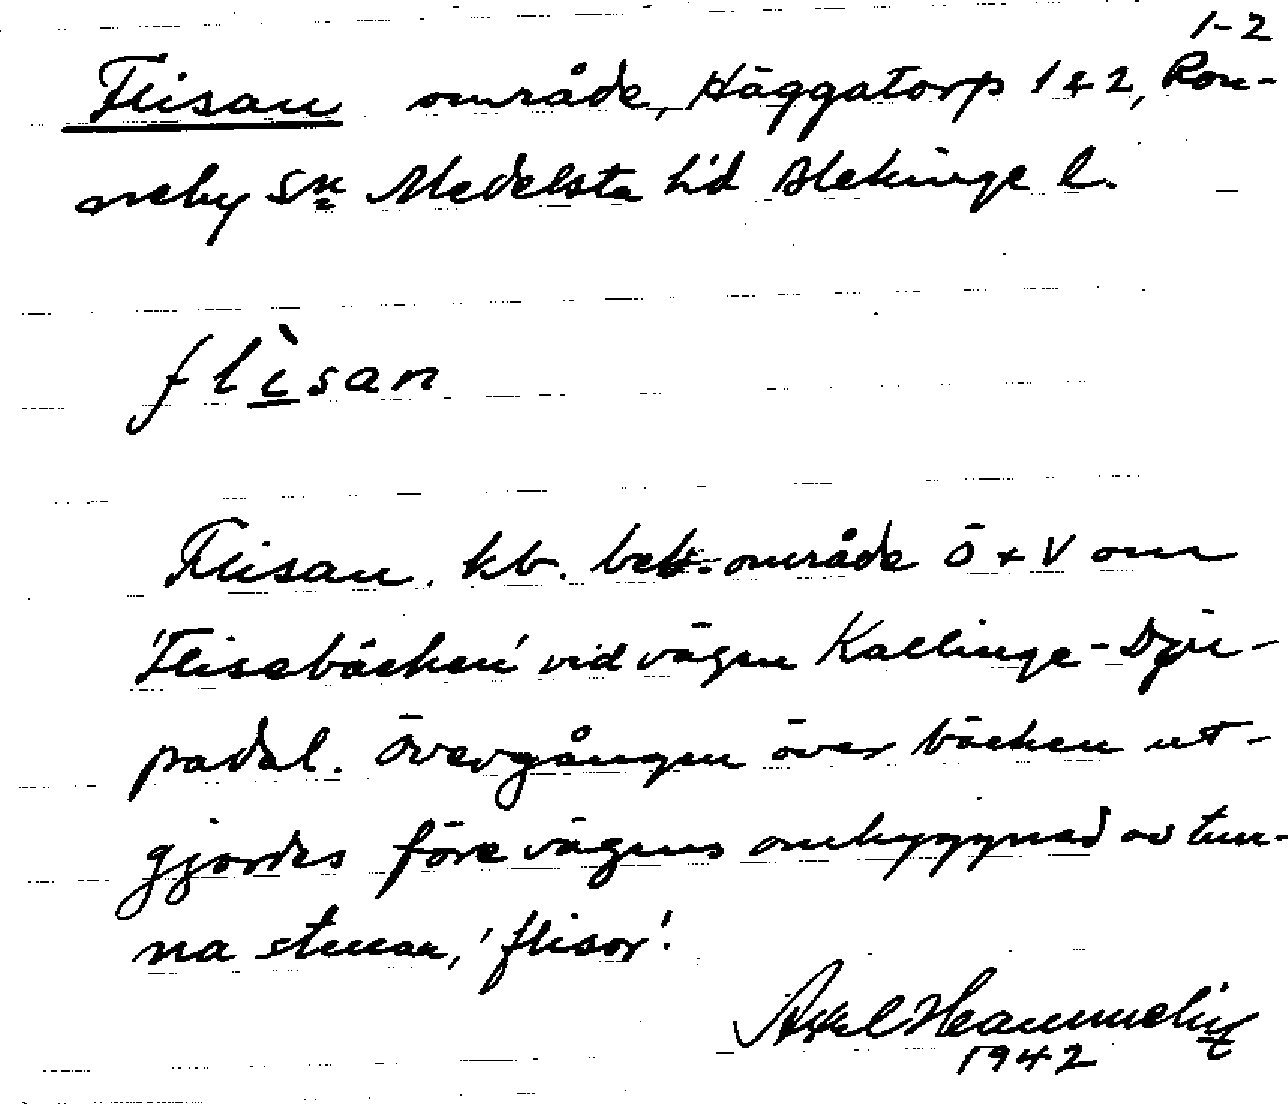 1-2
Flisan område, Häggatorp 1 & 2, Ron-
neby sn Medelsta h'd Blekinge l.
flìsan
Flisan. kb. beb. område Ö + V om
'Flisebäcken' vid vägen Kallinge-Dju-
padal. Övergången över bäcken ut-
gjordes före vägens ombyggnad av tun-
na stenar, 'flisor'.
Axel
1942